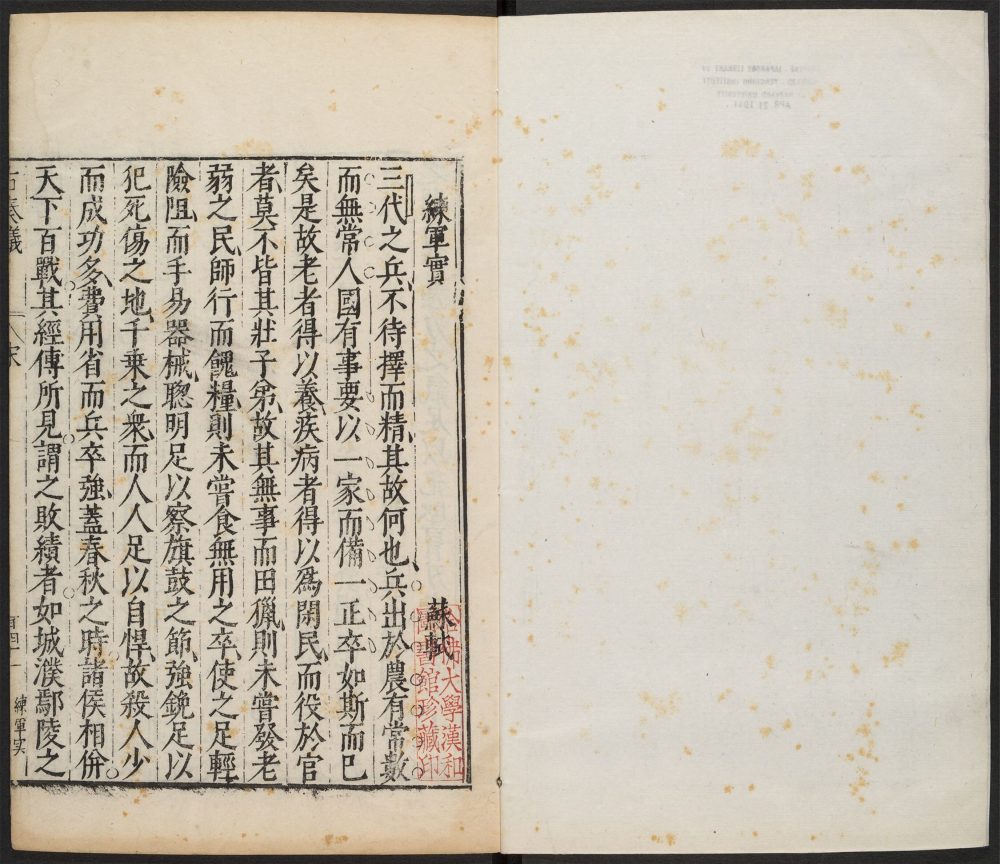 練軍實 蘇軾
哈佛大學漢和
圖書館珍藏印
三代之兵不待擇而精其故何也兵出於農有常數
而無常人國有事要以一家而備一正卒如斯而已
矣是故老者得以養疾病者得以爲閑民而役於官
者莫不皆其壯子弟故其無事而田獵則未嘗發老
弱之民師行而餽糧則未嘗食無用之卒使之足輕
險阻而手易器械聰明足以察旗鼓之節強銳足以
犯死傷之地千乗之衆而人人足以自悍故殺人少
而成功多費用省而兵卒強蓋春秋之時諸侯相併
天下百戰其經傳所見謂之敗績者如城濮鄢陵之
奏議 宋 練軍实